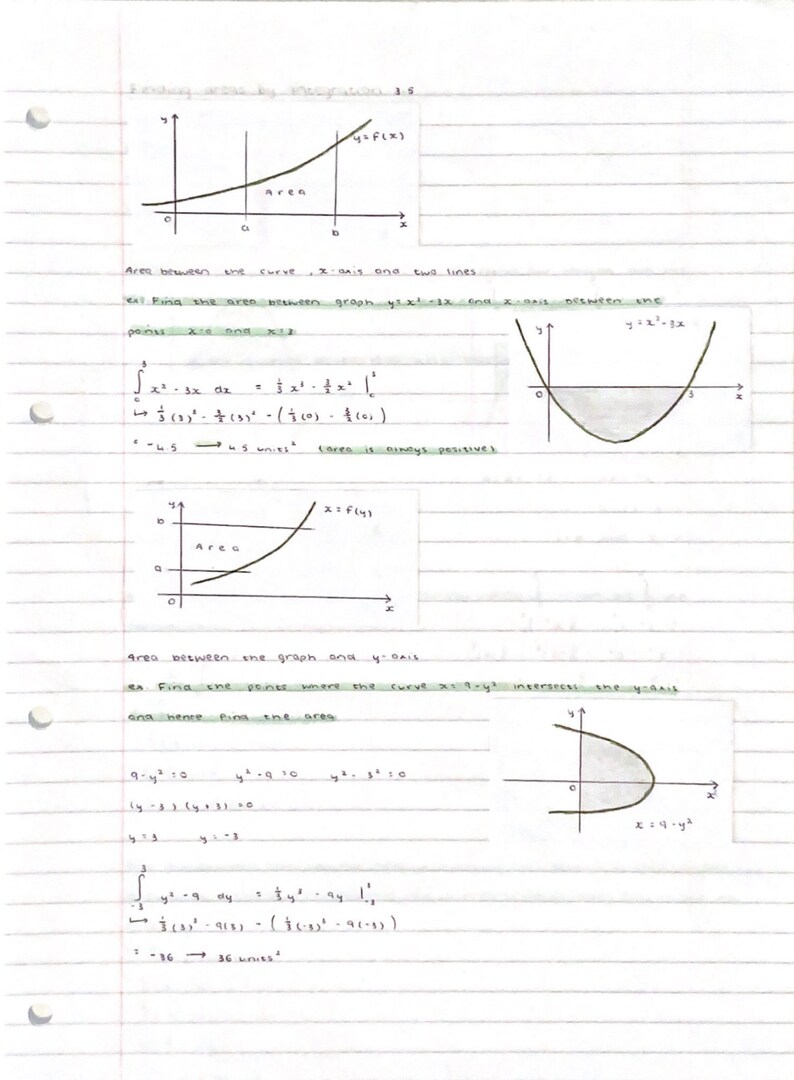 Finding areas by integration 3.5
y
y = f(x)
Area
0 a b x
Area between the curve, x-axis and two lines
ex Find the area between graph y = x² - 3x and x-axis between the
points x=0 and x=3
y y = x² - 3x
0 3 x
∫₀³ x² - 3x dx = ⅓ x³ - 3/2 x² |₀³
↳ ⅓ (3)³ - 3/2 (3)² - (⅓ (0) - 3/2 (0))
= -4.5 → 4.5 units² (area is always positive)
y
b x = f(y)
Area
a
0 x
Area between the graph and y-axis
ex Find the points where the curve x = 9 - y² intersects the y-axis
and hence find the area
y
0 x
x = 9 - y²
9 - y² = 0 y² - 9 = 0 y² - 3² = 0
(y - 3) (y + 3) = 0
y = 3 y = -3
∫₋₃³ y² - 9 dy = ⅓ y³ - 9y |₋₃³
↳ ⅓ (3)³ - 9(3) - (⅓ (-3)³ - 9(-3))
= -36 → 36 units²